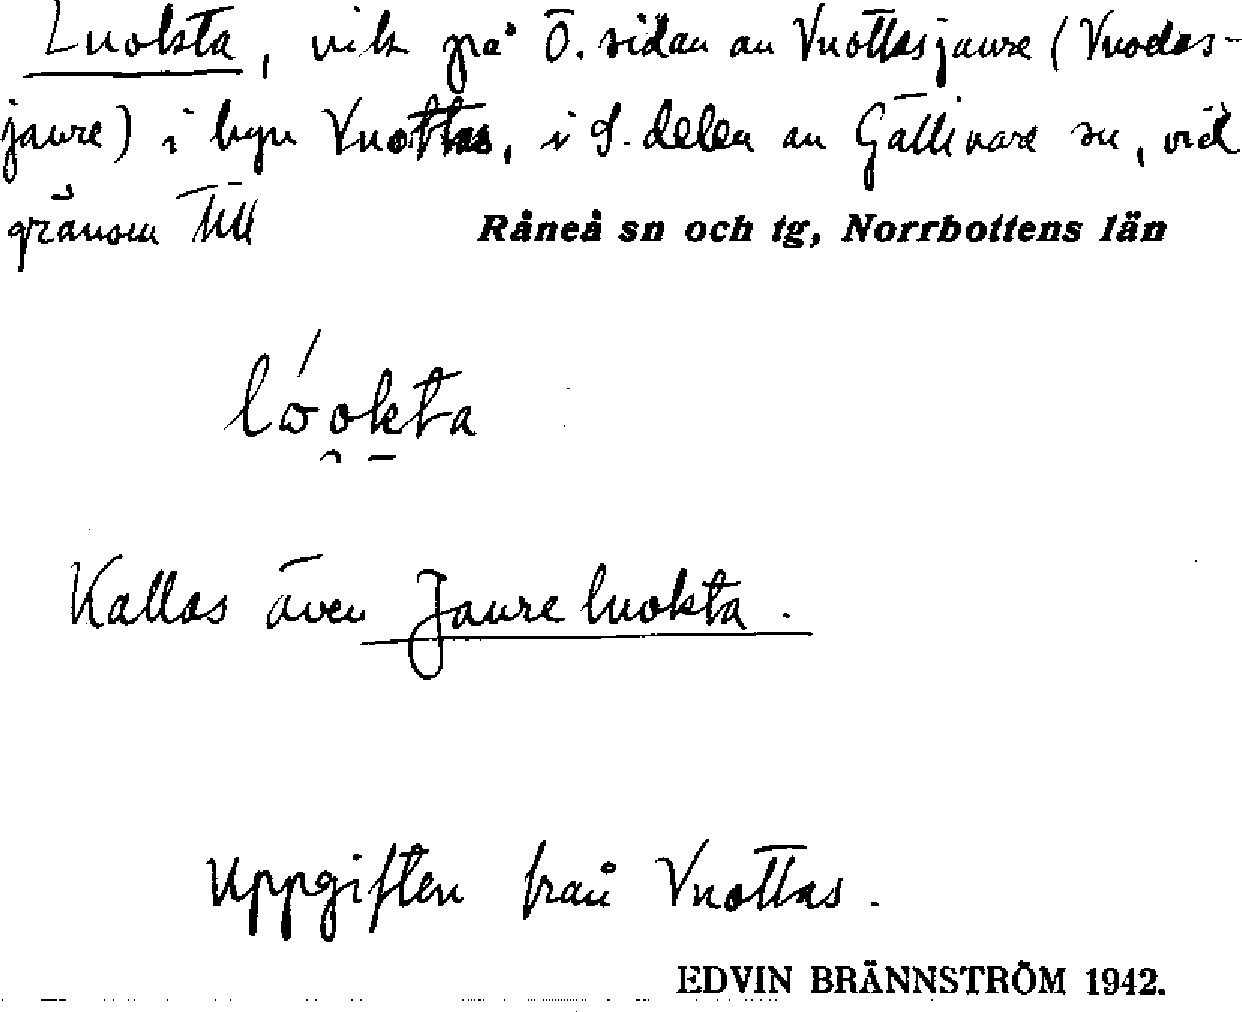 Luokta, vik på Ö. sidan av Vuottasjaure (Vuodas-
jaure) i byn Vuottas, i S. delen av Gällivare sn, vid
gränsen till Råneå sn och tg, Norrbottens län
lóokta
Kallas även Jaureluokta.
Uppgiften från Vuottas.
EDVIN BRÄNNSTRÖM 1942.